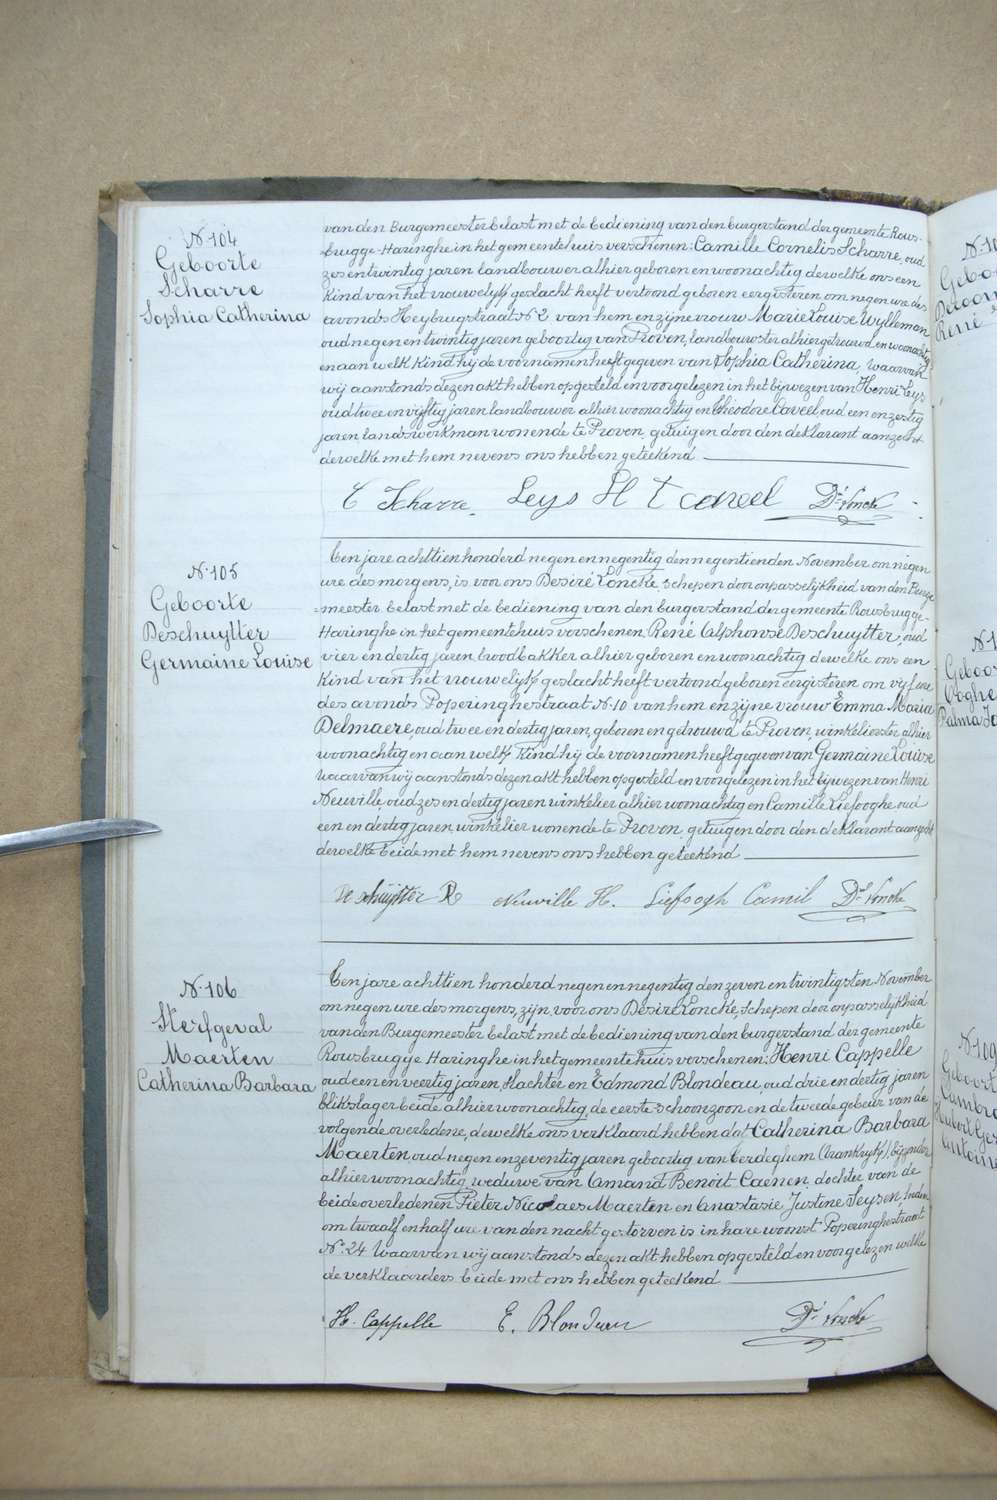 N. 104
Geboorte
Scharre
Sophia Catherina
van den Burgemeester belast met de bediening van den burgerstand der gemeente Rous-
brugge-Haringhe in het gemeentehuis verschenen: Camille Cornelis Scharre, oud
zes en twintig jaren landbouwer alhier geboren en woonachtig dewelke ons een
kind van het vrouwelijk geslacht heeft vertoond geboren eergisteren om negen ure des
avonds Heybrugstraat N. 2 van hem en zijne vrouw Marie Louise Wylleman
oud negen en twintig jaren geboortig van Proven, landbouwster alhier getrouwd en woonachtig
en aan welk kind hij de voornamen heeft gegeven van Sophia Catherina, waarvan
wij aanstonds dezen akt hebben opgesteld en voorgelezen in het bijwezen van Henri Leys
oud twee en vijftig jaren landbouwer alhier woonachtig en Théodore Caveel oud een en zestig
jaren landswerkman wonende te Proven, getuigen door den deklarant aanzocht
dewelke met hem nevens ons hebben geteekend
C Scharre. Leys H T caveel Dré Loncke
N. 105
Geboorte
Deschuytter
Germaine Louise
Een jare achttien honderd negen en negentig den negentienden November om negen
ure des morgens, is voor ons Desiré Loncke, schepen door onpasselijkheid van den Burge-
meester belast met de bediening van den burgerstand der gemeente Rousbrugge-
Haringhe in het gemeentehuis verschenen: René Alphonse Deschuytter, oud
vier en dertig jaren broodbakker alhier geboren en woonachtig dewelke ons een
kind van het vrouwelijk geslacht heeft vertoond geboren eergisteren om vijf ure
des avonds Poperinghestraat N. 10 van hem en zijne vrouw Emma Maria
Delmaere, oud twee en dertig jaren, geboren en getrouwd te Proven, winkelierster alhier
woonachtig en aan welk kind hij de voornamen heeft gegeven van Germaine Louise
waarvan wij aanstonds dezen akt hebben opgesteld en voorgelezen in het bijwezen van Henri
Neuville, oud zes en dertig jaren winkelier alhier woonachtig en Camille Liefooghe oud
een en dertig jaren, winkelier wonende te Proven, getuigen door den deklarant aanzocht
dewelke beide met hem nevens ons hebben geteekend
Deschuijtter R Neuville H. Liefoogh Camil Dré Loncke
N. 106
Sterfgeval
Maerten
Catherina Barbara
Een jare achttien honderd negen en negentig den zeven en twintigsten November
om negen ure des morgens, zijn voor ons Desiré Loncke, Schepen door onpasselijkheid
van den Burgemeester belast met de bediening van den burgerstand der gemeente
Rousbrugge Haringhe in het gemeentehuis verschenen: Henri Cappelle
oud een en veertig jaren, slachter en Edmond Blondeau, oud drie en dertig jaren
blikslager beide alhier woonachtig, de eerste schoonzoon en de tweede gebuur van de
volgende overledene, dewelke ons verklaard hebben dat Catherina Barbara
Maerten, oud negen en zeventig jaren geboortig van Eerdeghem (Frankryk), bijzondere
alhier woonachtig, weduwe van Amand Benoit Caenen, dochter van de
beide overledenen Pieter Nicolaes Maerten en Anastasie Justine Seysen, heden
om twaalf en half ure van den nacht gestorven is in hare woonst Poperinghestraat
N. 24 Waarvan wij aanstonds dezen akt hebben opgesteld en voorgelezen welke
de verklaarders beide met ons hebben geteekend
H. Cappelle E. Blondeau Dré Loncke